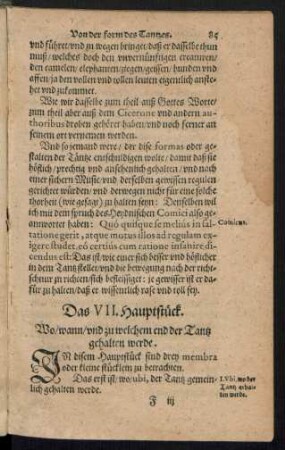 Von der form des Tantzes. 84
vnd führet/ vnd zu wegen bringet/ daß er dasselbe thun
muß/ welches doch den vnvernünfftigen creaturen/
den camelen/ elephanten/ ziegen/ geissen/ hunden vnd
affen/ ja den vollen vnd tollen leuten eigentlich anste-
het vnd zukommet.
Wie wir dasselbe zum theil auß Gottes Worte/
zum theil aber auß dem Cicerone vnd andern au-
thoribus droben gehöret haben/ vnd noch ferner an
seinem ort vernemen werden.
Vnd so jemand were/ der dise formas oder ge-
stalten der Täntze entschuldigen wolte/ damit daß sie
höflich/ prechtig vnd ansehenlich gehalten/ vnd nach
einer sichern Music/ vnd derselben gewissen regulen
gerichtet würden/ vnd derwegen nicht für eine solche
thorheit (wie gesagt) zu halten seyn: Denselben wil
ich mit dem spruch des Heydnischen Comici also ge-
antwortet haben: Quò quisque se melius in sal-
Comicus.
tatione gerit, atque motus illos ad regulam ex-
igere studet, eò certius cum ratione insanire di-
cendus est: Das ist/ wie einer sich besser vnd höflicher
in dem Tantz stellet/ vnd die bewegung nach der richt-
schnur zu richten/ sich befleissiget: je gewisser ist er da-
für zu halten/ daß er wissentlich rase vnd toll sey.
Das VII. Hauptstück.
Wo/ wann/ vnd zu welchem end der Tantz
gehalten werde.
IN disem Hauptstück sind drey membra
oder kleine stücklein zu betrachten.
Das erst ist/ wo/ ubi, der Tantz gemein-
lich gehalten werde.
I. Vbi, wo der
Tantz gehal-
ten werde.
F iij